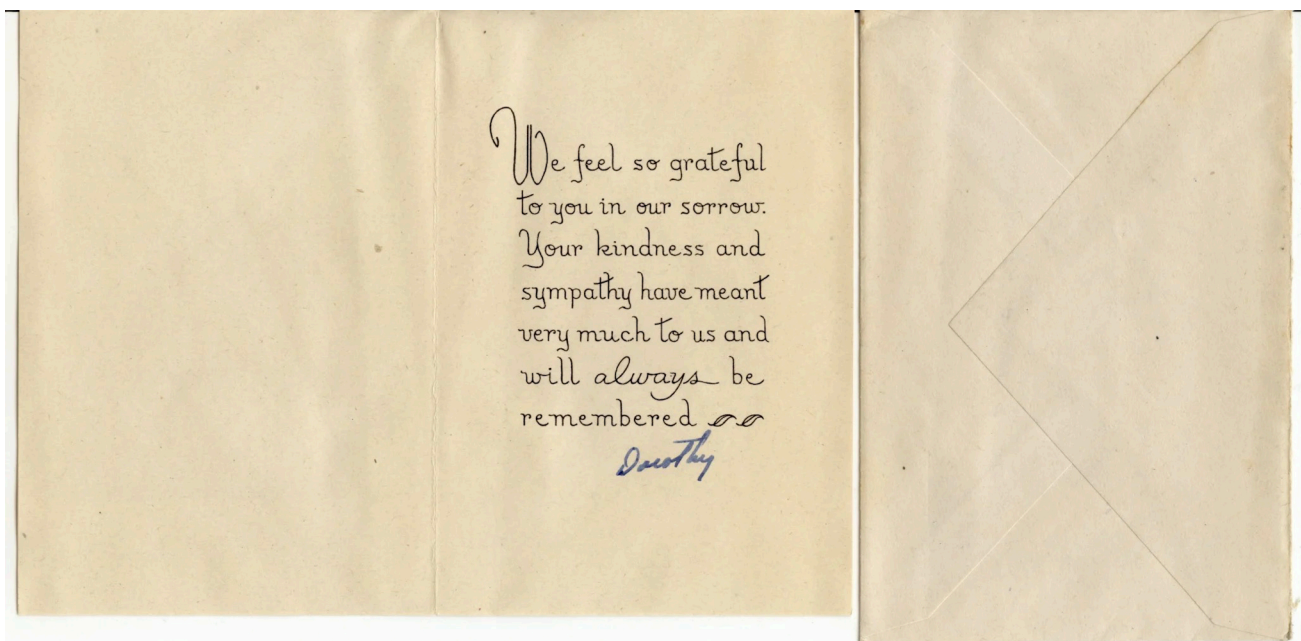 We feel so grateful
to you in our sorrow.
Your kindness and
sympathy have meant
very much to us and
will always be
remembered
Dorothy